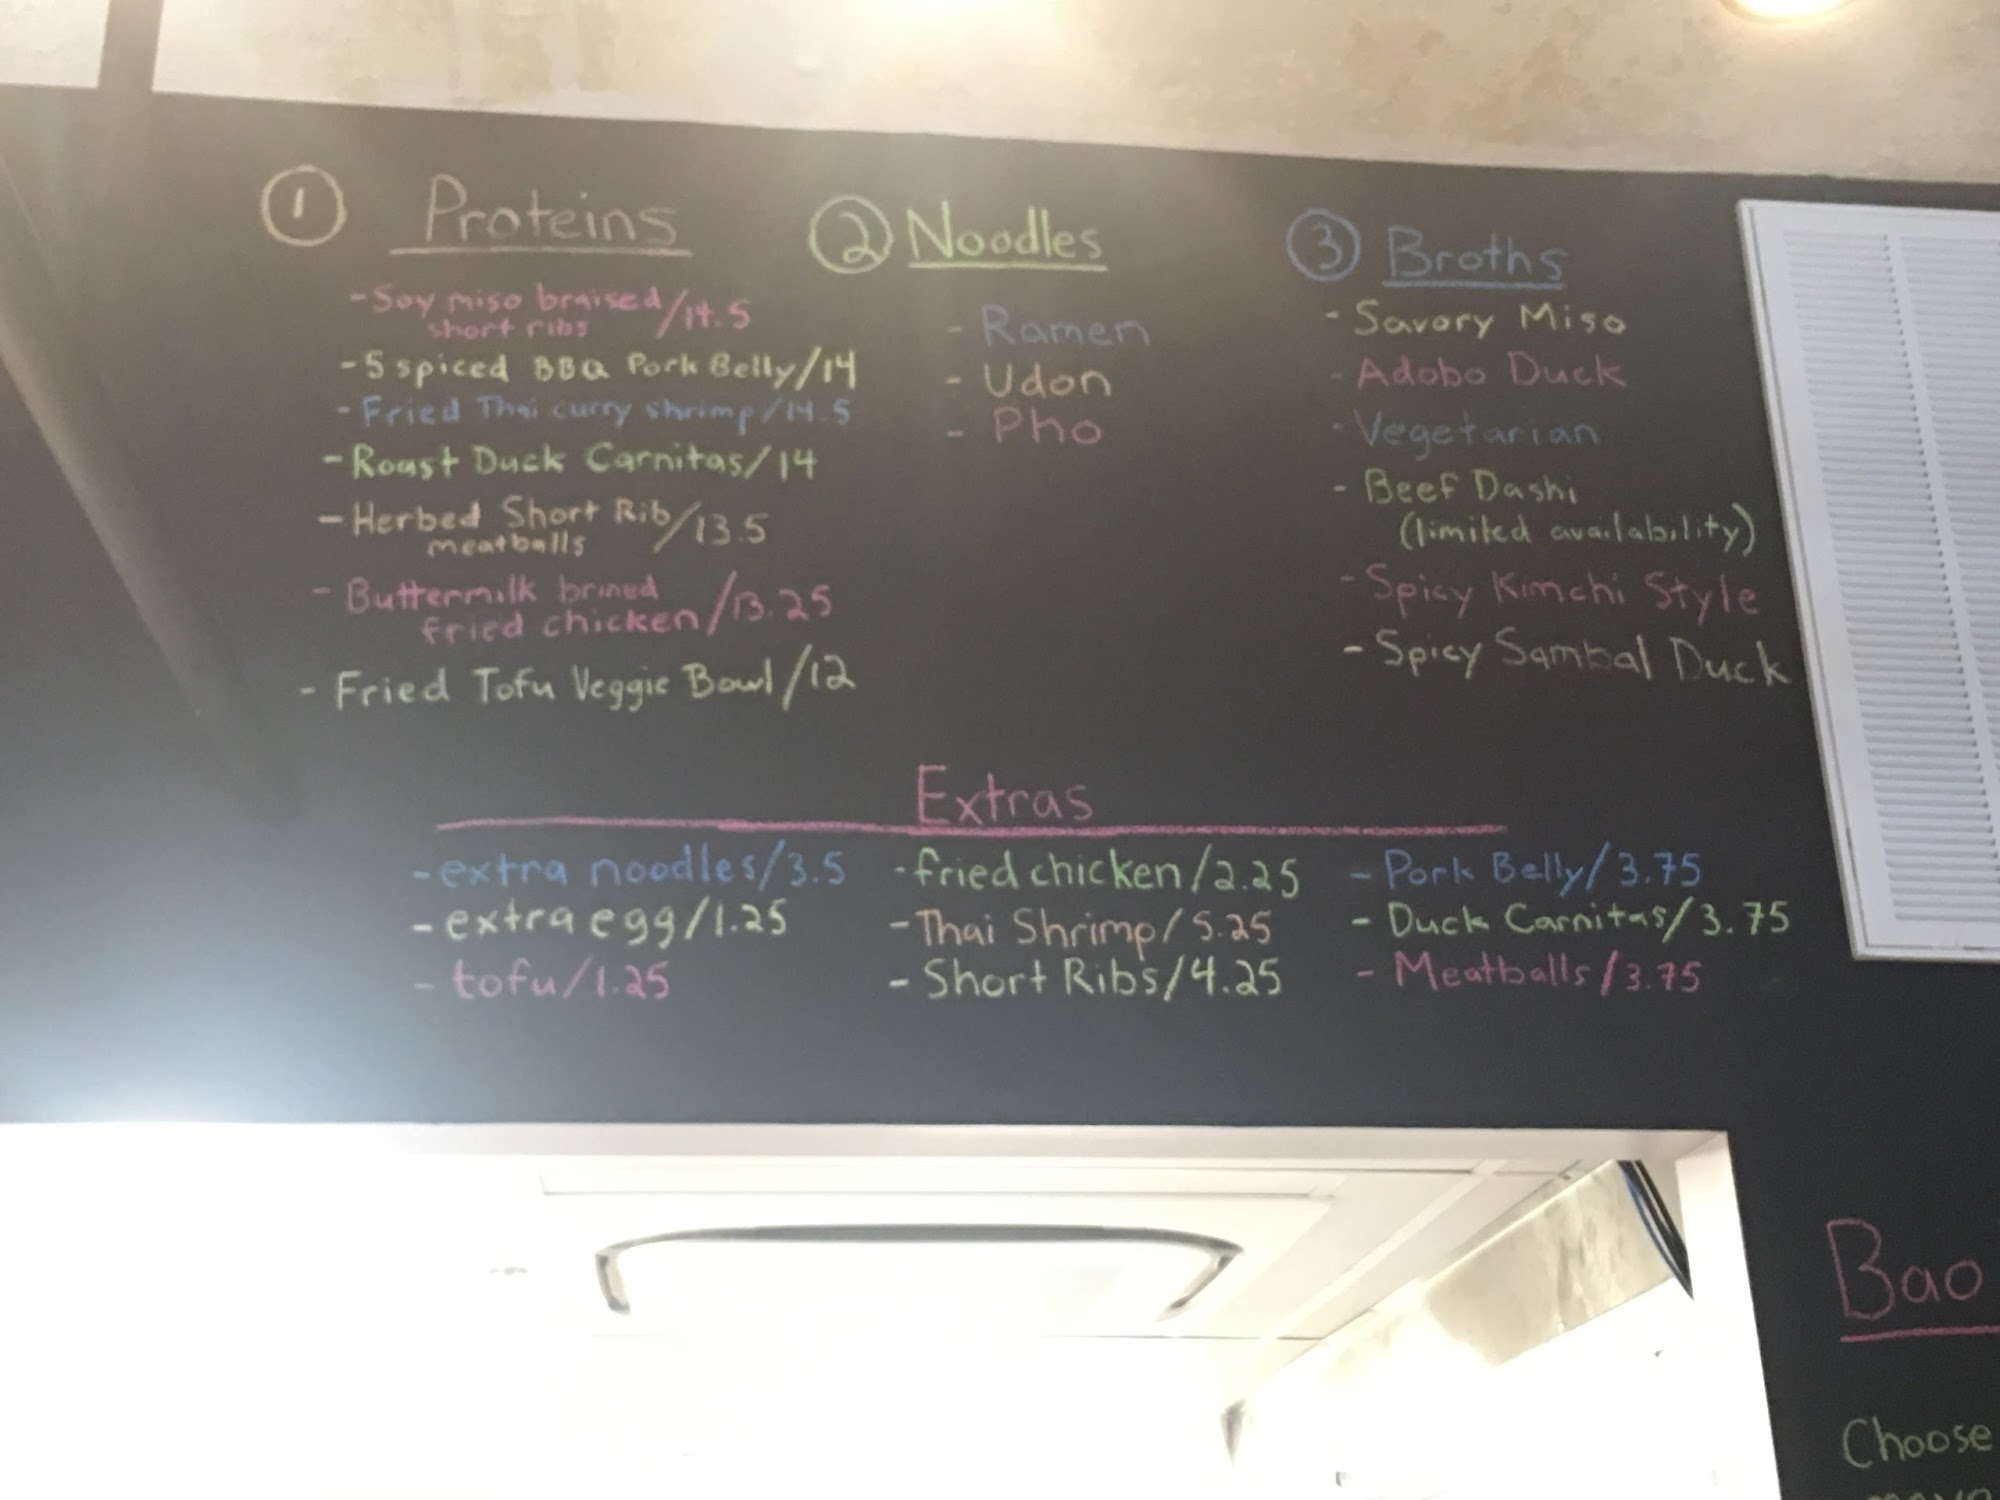 ① Proteins
- Soy miso braised /14.5
short ribs
- 5 spiced BBQ Pork Belly/14
- Fried Thai curry shrimp/14.5
- Roast Duck Carnitas/14
- Herbed Short Rib /13.5
meatballs
- Buttermilk brined
fried chicken /13.25
- Fried Tofu Veggie Bowl/12
② Noodles
- Ramen
- Udon
- Pho
③ Broths
- Savory Miso
- Adobo Duck
- Vegetarian
- Beef Dashi
(limited availability)
- Spicy Kimchi Style
- Spicy Sambal Duck
Extras
- extra noodles/3.5
- extra egg/1.25
- tofu/1.25
- fried chicken/2.25
- Thai Shrimp/5.25
- Short Ribs/4.25
- Pork Belly/3.75
- Duck Carnitas/3.75
- Meatballs/3.75
Bao
Choose